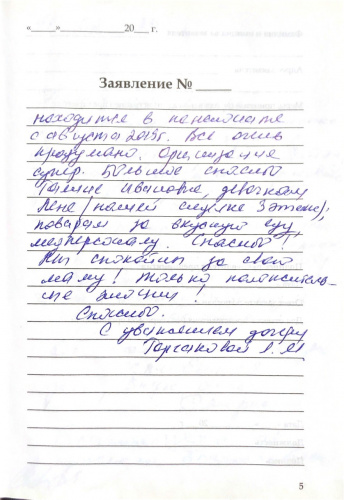 «____»____________20___ г.
Заявление № _____
находится в пансионате
с августа 2015г. Все очень
продумано. Организация
супер. Большое спасибо
Татьяне Ивановне, девочкам
Лене (нашей 3 этаже),
поварам за вкусную еду,
медперсоналу. Спасибо!
Мы спокойны за свою
маму! Только положитель-
ные эмоции!
Спасибо.
С уважением дочери
Л. М
5